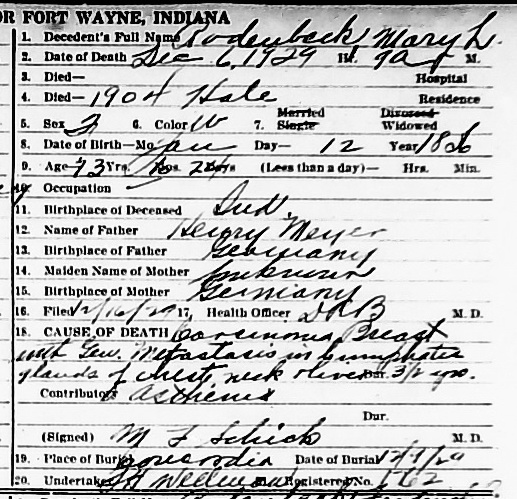 OR FORT WAYNE, INDIANA
1. Decedent's Full Name Rodenbeck Mary L.
2. Date of Death Dec 6, 1929 Hr. 9 a M.
3. Died— Hospital
4. Died— 1904 Hale Residence
Married Divorced
5. Sex F 6. Color W 7. Single Widowed
8. Date of Birth—Mo. Jan Day— 12 Year 1856
9. Age 73 Yrs. Mos. 24 Days (Less than a day)— Hrs. Min.
10. Occupation
11. Birthplace of Deceased Ind.
12. Name of Father Henry Meyer
13. Birthplace of Father Germany
14. Maiden Name of Mother Unknown
15. Birthplace of Mother Germany
16. Filed 12/16/29 17. Health Officer M. D.
18. CAUSE OF DEATH Carcinoma Breast
with Gen. Metastasis in lymphatic
glands of chest, neck & liver Dur. 3 1/2 yrs.
Contributory Asthenia
Dur.
(Signed) M F Schick M. D.
19. Place of Burial Concordia Date of Burial 12/9/29
20. Undertaker Registered No. 1762